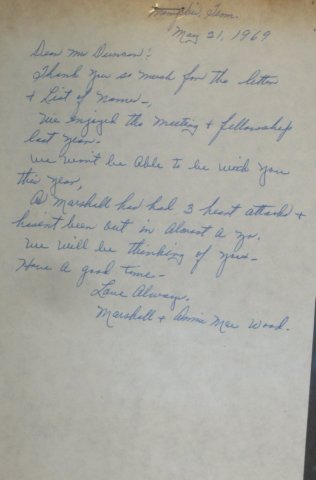 Memphis, Tenn.
May 21, 1969
Dear Mr Duncan:
Thank you so much for the letter
& List of Names -,
We Enjoyed the Meeting & fellowship
last year.
We won't be Able to be with you
this year,
As Marshall has had 3 heart attacks &
haven't been out in Almost a yr.
We will be thinking of you -
Have A good time -
Love Always,
Marshall & Annie Mae Wood.